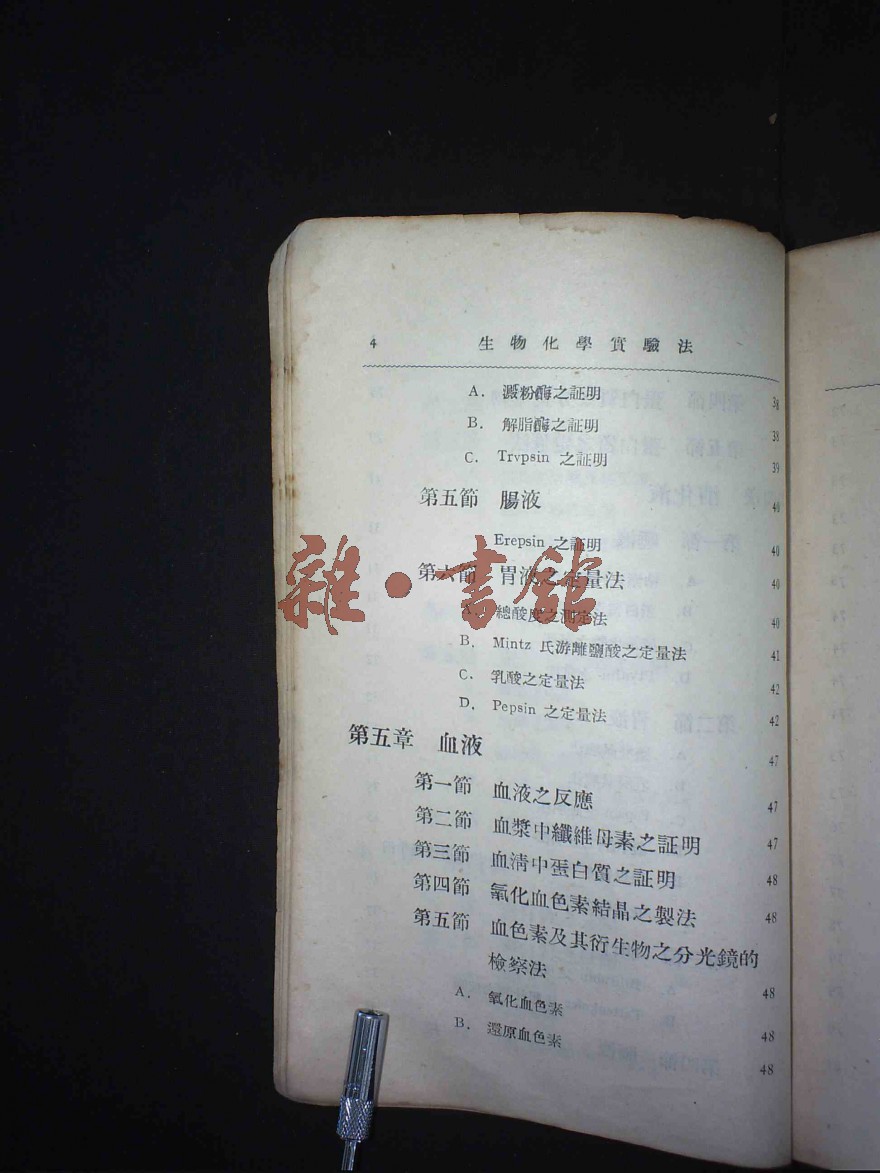 4 生物化學實驗法
A. 澱粉酶之証明 38
B. 解脂酶之証明 38
C. Trvpsin 之証明 39
第五節 腸液 40
Erepsin 之証明 40
第六節 胃液之定量法 40
A. 總酸度之測定法 40
B. Mintz 氏游離鹽酸之定量法 41
C. 乳酸之定量法 42
D. Pepsin 之定量法 42
第五章 血液 47
第一節 血液之反應 47
第二節 血漿中纖維母素之証明 47
第三節 血淸中蛋白質之証明 48
第四節 氧化血色素結晶之製法 48
第五節 血色素及其衍生物之分光鏡的
檢察法 48
A. 氧化血色素 48
B. 還原血色素 48
雜·書館